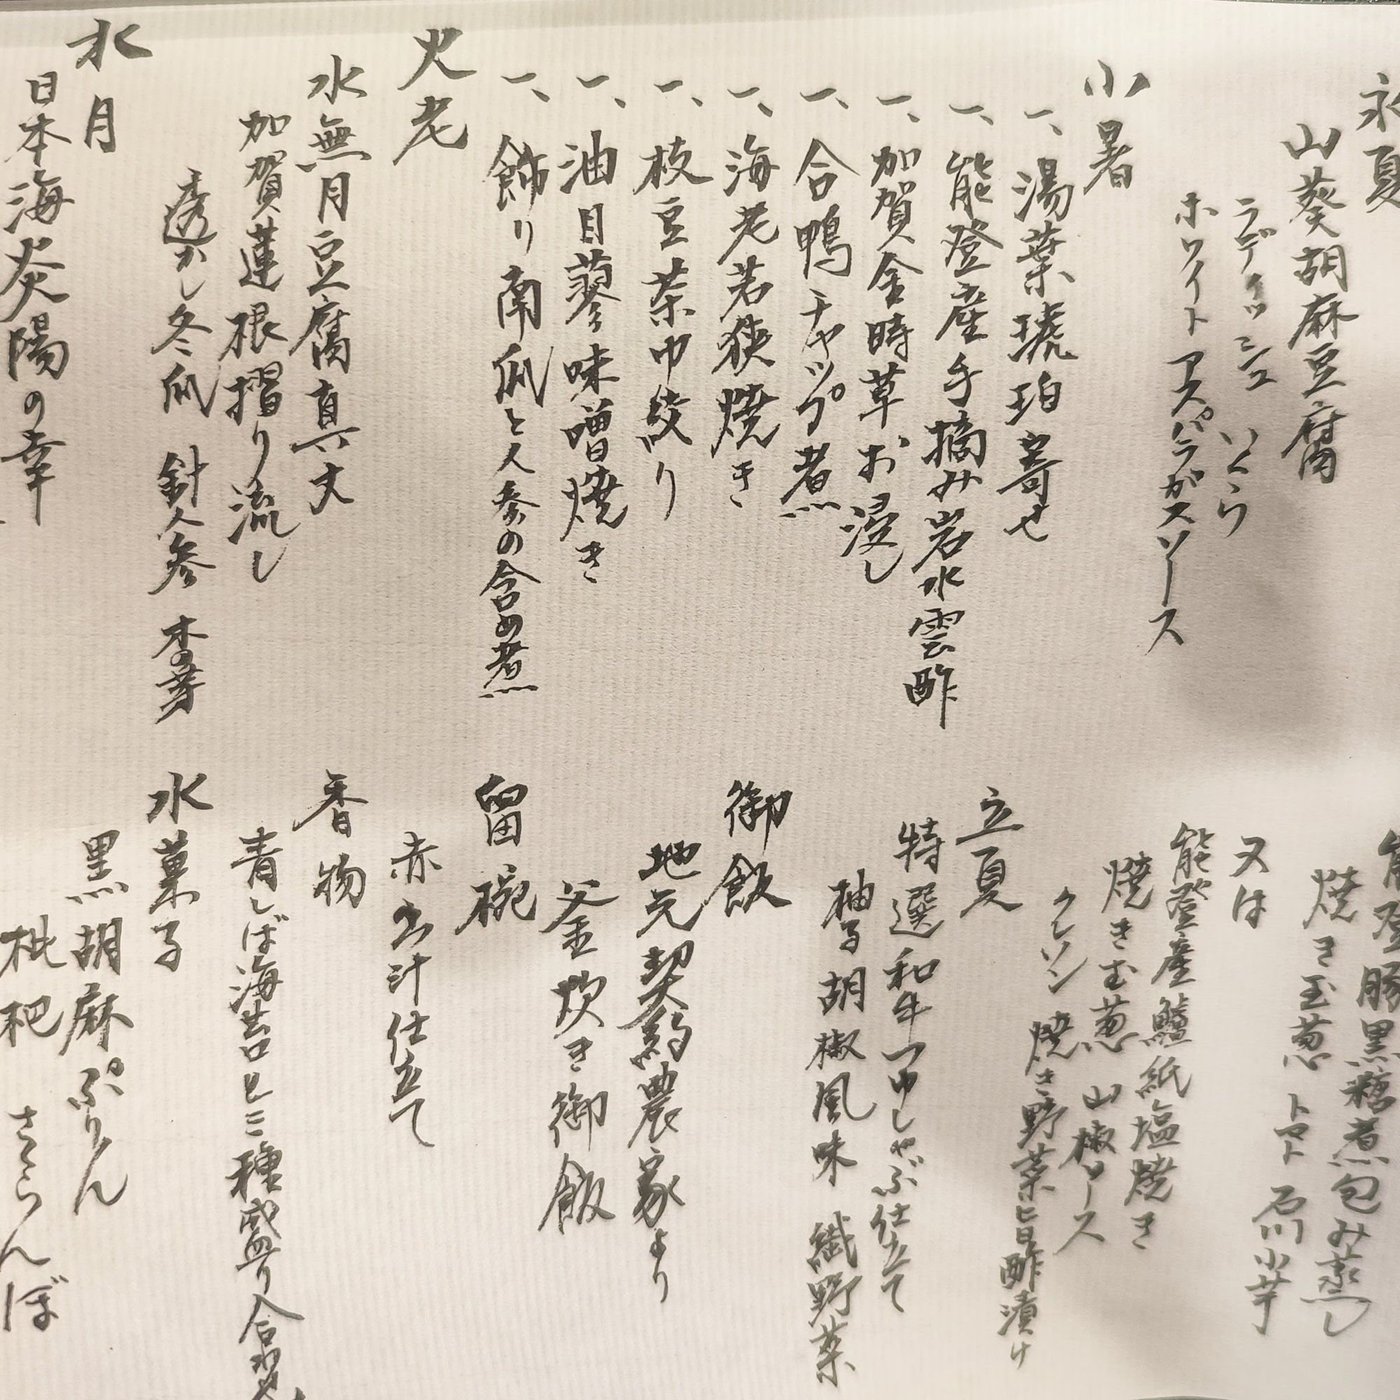 永夏
山葵胡麻豆腐
ラディッシュ いくら
ホワイトアスパラガスソース
小暑
一、湯葉琥珀寄せ
一、能登産手摘み岩水雲酢
一、加賀金時草お浸し
一、合鴨チャップ煮
一、海老若狭焼き
一、枝豆茶巾絞り
一、油目蓼味噌焼き
一、飾り南瓜と人参の含め煮
火老
水無月豆腐真丈
加賀蓮根摺り流し
透かし冬瓜 針人参 木の芽
水月
日本海炎陽の幸
能登豚黒糖煮包み蒸し
焼き玉葱 トマト 石川小芋
又は
能登産鱸紙塩焼き
焼き玉葱 山椒ソース
クレソン 焼き野菜旨酢漬け
立夏
特選和牛つゆしゃぶ仕立て
柚子胡椒風味 繊野菜
御飯
地元契約農家より
釜炊き御飯
留椀
赤出汁仕立て
香物
青しば海苔と三種盛り合わせ
水菓子
黒胡麻ぷりん
枇杷 さくらんぼ